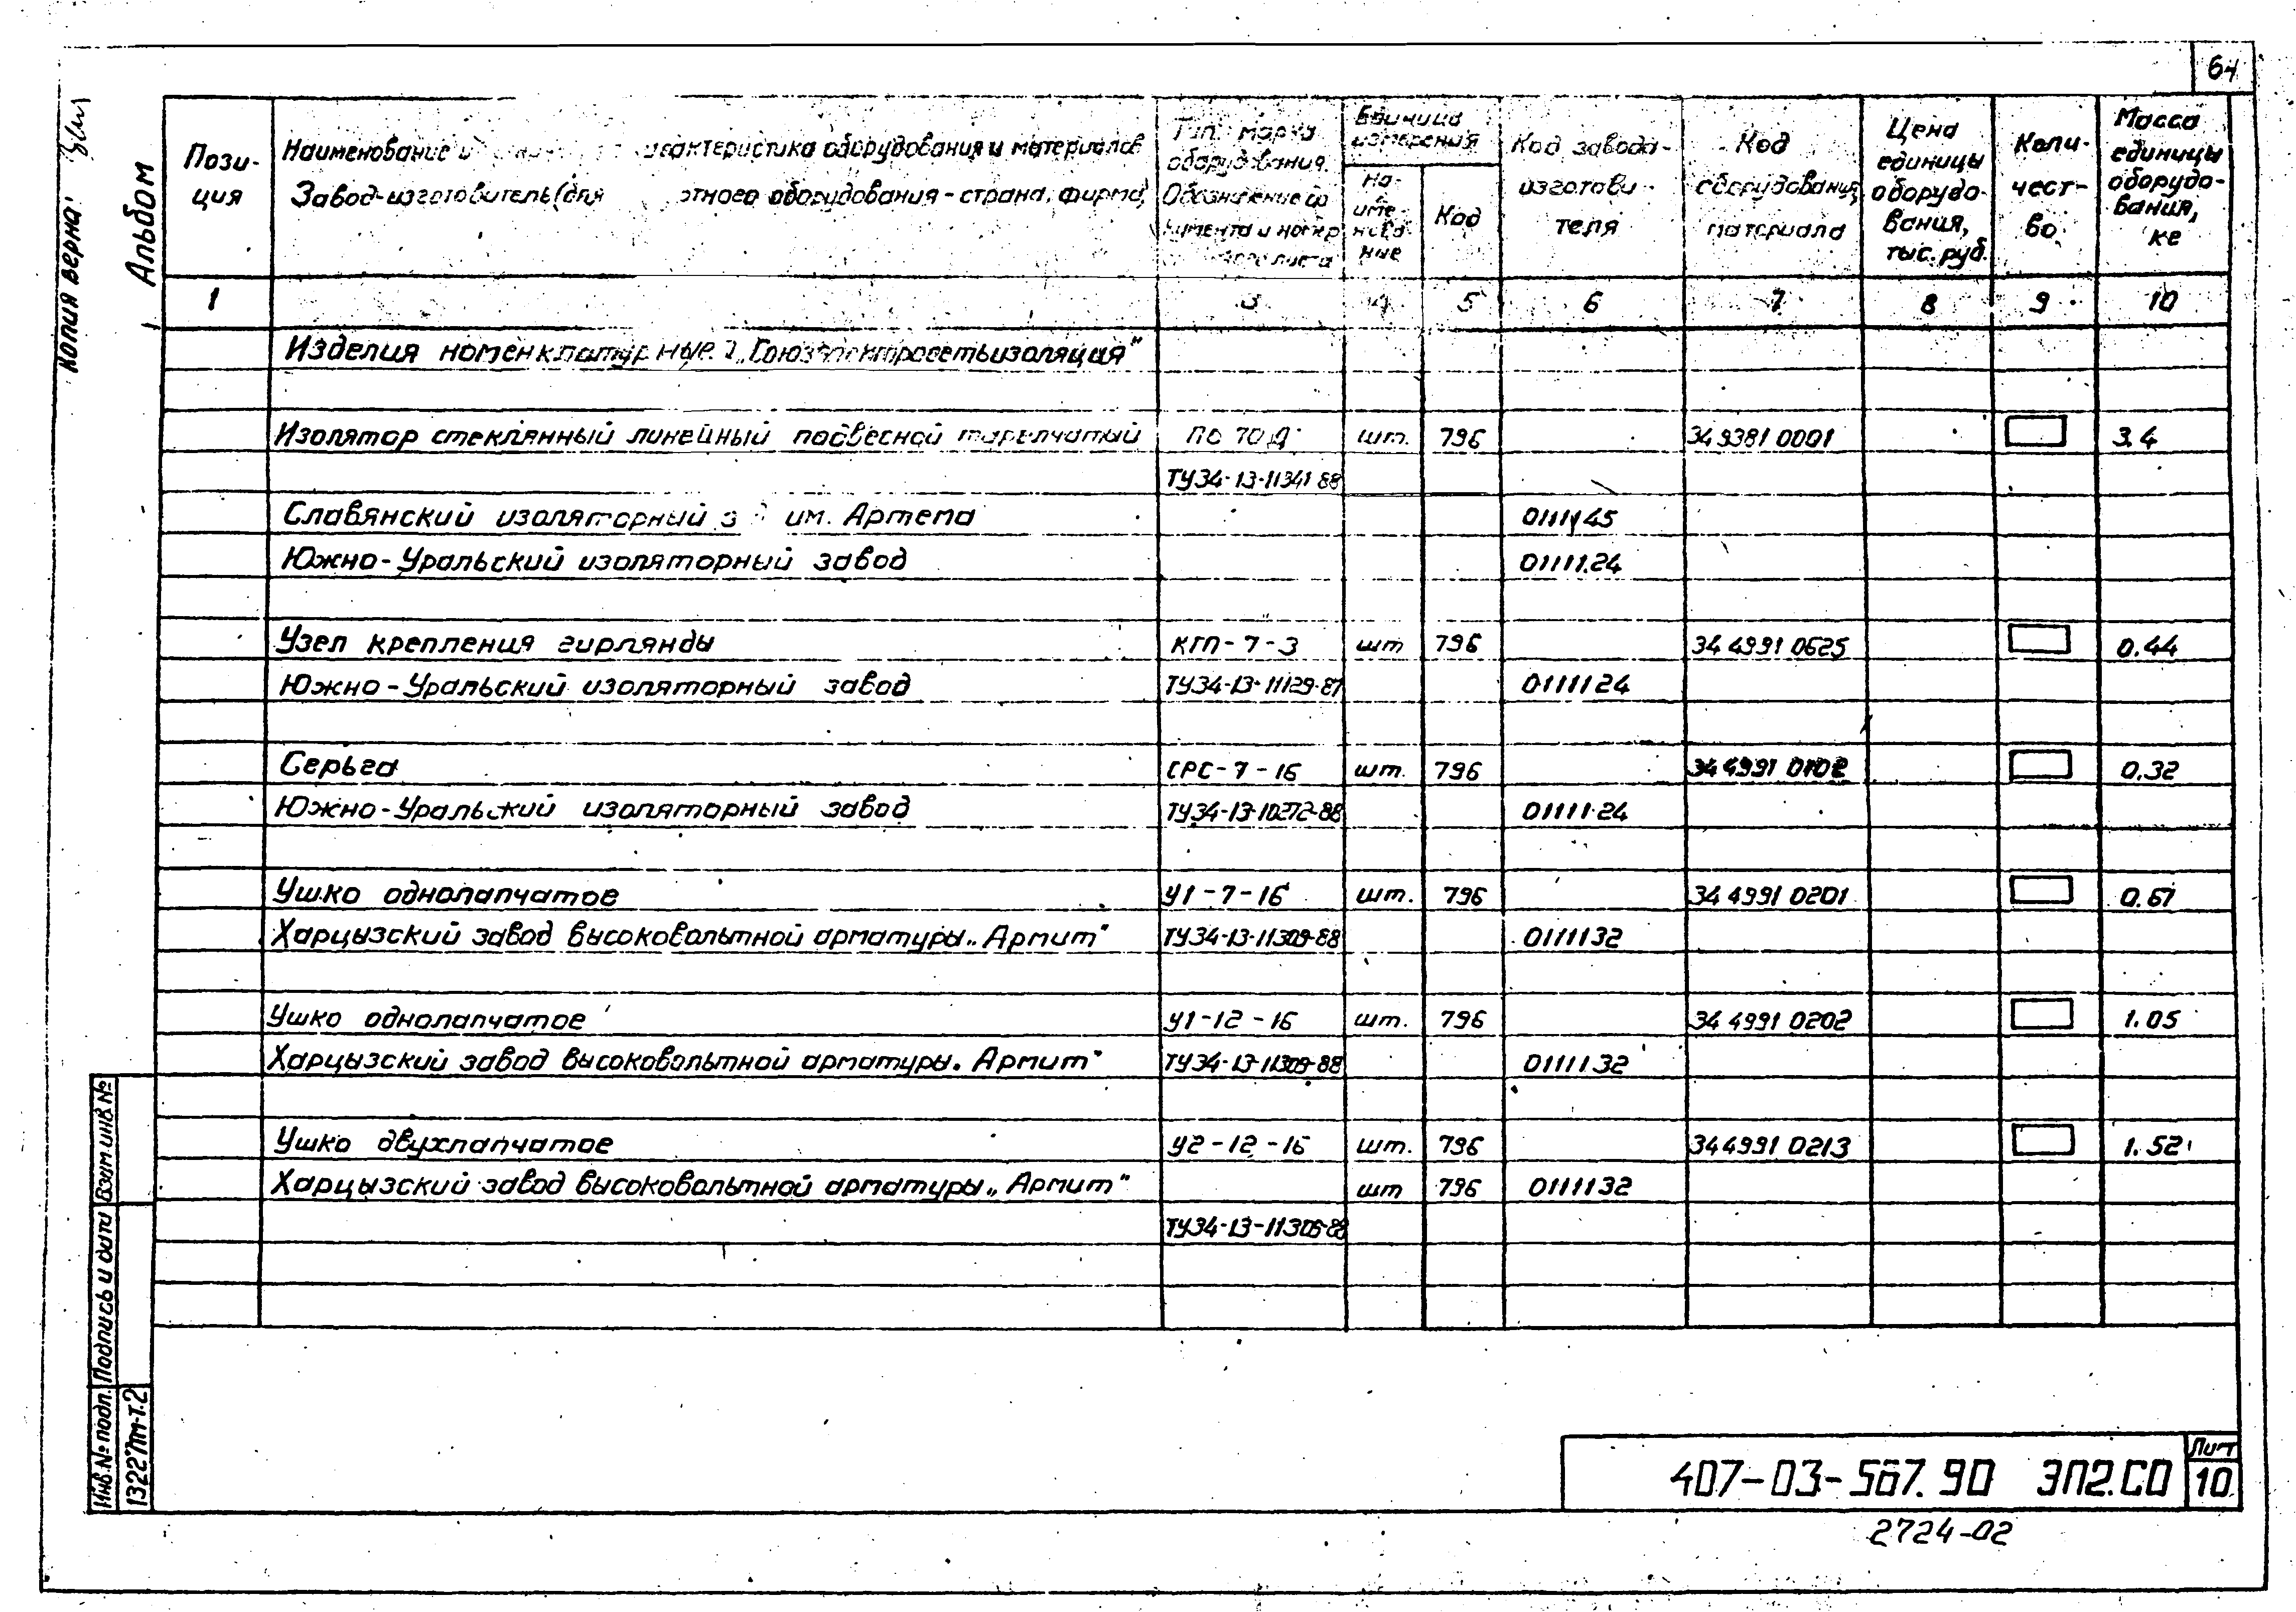 64
Копия верна:
Альбом
Пози-
ция
Наименование и характеристика оборудования и материалов
Завод-изготовитель (для отного оборудования - страна, фирма)
Тип, марка
оборудования.
Обозначение до
кумента и номер
листа
Единица
измерения
На-
име-
нова-
ние
Код
Код завода-
изготови-
теля
Код
оборудования,
материала
Цена
единицы
оборудо-
вания,
тыс. руб.
Коли-
чест-
во
Масса
единицы
оборудо-
вания,
кг
1 3 4 5 6 7 8 9 10
Изделия номенклатурные „Союзэлектросетьизоляция"
Изолятор стеклянный линейный подвесной тарельчатый ПС 70 Д шт. 796 34 9381 0001 3.4
ТУ34-13-11341 88
Славянский изоляторный им. Артема 0111145
Южно-Уральский изоляторный завод 0111124
Узел крепления гирлянды КГП-7-3 шт 796 34 4991 0625 0.44
Южно-Уральский изоляторный завод ТУ34-13-11129-87 0111124
Серьга СРС-7-16 шт. 796 34 4991 0102 0.32
Южно-Уральский изоляторный завод ТУ34-13-10272-88 0111124
Ушко однолапчатое У1-7-16 шт. 796 34 4991 0201 0.67
Харцызский завод высоковольтной арматуры „Армлит" ТУ34-13-11309-88 0111132
Ушко однолапчатое У1-12-16 шт. 796 34 4991 0202 1.05
Харцызский завод высоковольтной арматуры. Армлит" ТУ34-13-11309-88 0111132
Ушко двухлапчатое У2-12-16 шт. 796 34 4991 0213 1.52
Харцызский завод высоковольтной арматуры „Армлит" шт 796 0111132
ТУ34-13-11306-88
Инв.№ подп. Подпись и дата Взам.инв.№
13227тм-т.2
407-03-567.90 ЭП2.СО
Лист
10
2724-02